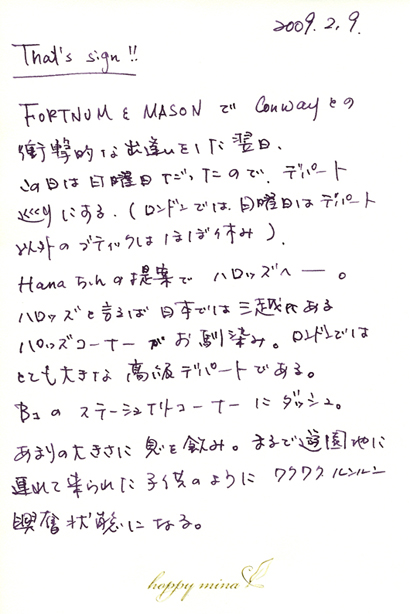 2009.2.9.
That's sign!!
FORTNUM & MASON で Conwayとの
衝撃的な出逢いをした翌日、
この日は日曜日だったので、デパート
巡りにする。(ロンドンでは、日曜日はデパート
以外のブティックはほぼ休み)。
Hanaちゃんの提案で ハロッズへー。
ハロッズと言えば 日本では三越にある
ハロッズコーナーがお馴染み。ロンドンでは
とても大きな 高級デパートである。
B1の ステーショナリーコーナーに ダッシュ。
あまりの大きさに 息を飲み。まるで遊園地に
連れて来られた子供のように ワクワクルンルン
興奮状態になる。
happy mina